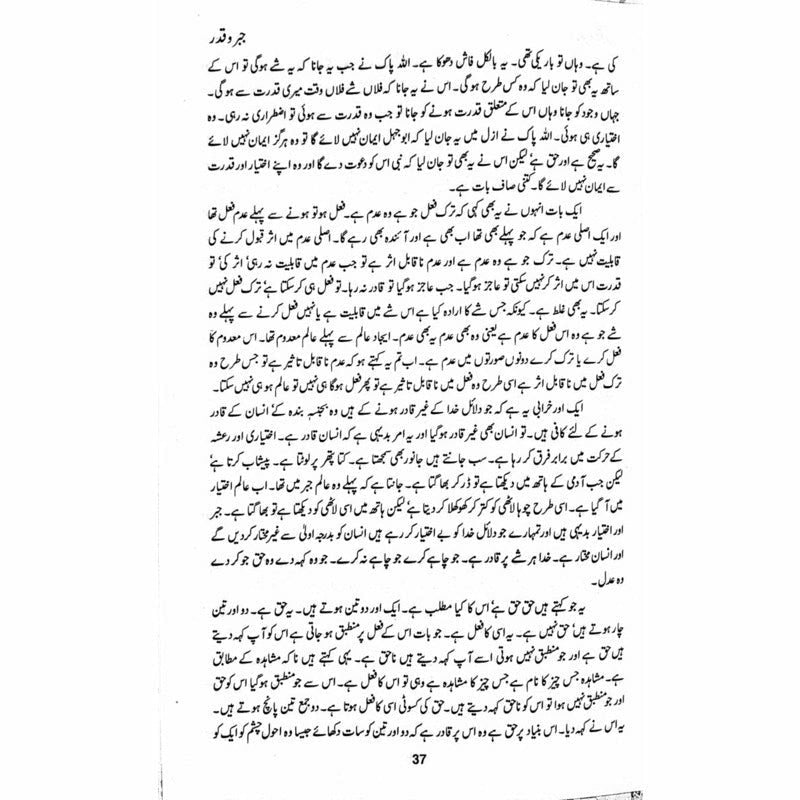 جبر و قدر
کی ہے۔ وہاں تو باریکی تھی۔ یہ بالکل فاش دھوکا ہے۔ اللہ پاک نے جب یہ جانا کہ یہ شے ہوگی تو اس کے
ساتھ یہ بھی تو جان لیا کہ وہ کس طرح ہوگی۔ اس نے یہ جانا کہ فلاں شے فلاں وقت میری قدرت سے ہوگی۔
جہاں وجود کو جانا وہاں اس کے متعلق قدرت ہونے کو جانا تو جب وہ قدرت سے ہوئی تو اضطراری نہ رہی۔ وہ
اختیاری ہی ہوئی۔ اللہ پاک نے ازل میں یہ جان لیا کہ ابوجہل ایمان نہیں لائے گا تو وہ ہرگز ایمان نہیں لائے
گا۔ یہ صحیح ہے اور حق ہے لیکن اس نے یہ بھی تو جان لیا کہ نبی اس کو دعوت دے گا اور وہ اپنے اختیار اور قدرت
سے ایمان نہیں لائے گا۔ کتنی صاف بات ہے۔
ایک بات انہوں نے یہ بھی کہی کہ ترک فعل جو ہے وہ عدم ہے۔ فعل ہو تو ہونے سے پہلے عدم فعل تھا
اور ایک اصلی عدم ہے کہ جو پہلے بھی تھا اب بھی ہے اور آئندہ بھی رہے گا۔ اصلی عدم میں اثر قبول کرنے کی
قابلیت نہیں ہے۔ ترک جو ہے وہ عدم ہے اور عدم ناقابل اثر ہے تو جب عدم میں قابلیت نہ رہی' اثر کی' تو
قدرت اس میں اثر کر نہیں سکتی تو عاجز ہوگیا۔ جب عاجز ہوگیا تو قادر نہ رہا۔ تو فعل ہی کرسکتا ہے' ترک فعل نہیں
کرسکتا۔ یہ بھی غلط ہے۔ کیونکہ جس شے کا ارادہ کیا ہے اس شے میں قابلیت ہے یا نہیں فعل کرنے سے پہلے وہ
شے جو ہے وہ اس فعل کا عدم ہے یعنی وہ بھی عدم یہ بھی عدم۔ ایجاد عالم سے پہلے عالم معدوم تھا۔ اس معدوم کا
فعل کرے یا ترک کرے دونوں صورتوں میں عدم ہے۔ اب تم یہ کہتے ہو کہ عدم ناقابل تاثیر ہے تو جس طرح وہ
ترک فعل میں ناقابل اثر ہے اسی طرح وہ فعل میں ناقابل تاثیر ہے تو پھر فعل ہوگا ہی نہیں تو عالم ہو ہی نہیں سکتا۔
ایک اور خرابی یہ ہے کہ جو دلائل خدا کے غیر قادر ہونے کے ہیں وہ بجنسہ بندہ کے' انسان کے قادر
ہونے کے لئے کافی ہیں۔ تو انسان بھی غیر قادر ہوگیا اور یہ امر بدیہی ہے کہ انسان قادر ہے۔ اختیاری اور رعشہ
کے حرکت میں برابر فرق کر رہا ہے۔ سب جانتے ہیں جانور بھی سمجھتا ہے۔ کتا پتھر پر لوٹتا ہے۔ پیشاب کرتا ہے'
لیکن جب آدمی کے ہاتھ میں دیکھتا ہے تو ڈر کر بھاگتا ہے۔ جانتا ہے کہ پہلے وہ عالم جبر میں تھا۔ اب عالم اختیار
میں آ گیا ہے۔ اسی طرح چوہا لاٹھی کو کتر کر کھوکھلا کر دیتا ہے' لیکن ہاتھ میں اسی لاٹھی کو دیکھتا ہے تو بھاگتا ہے۔ جبر
اور اختیار بدیہی ہیں اور تمہارے جو دلائل خدا کو بے اختیار کر رہے ہیں انسان کو بدرجہ اولیٰ سے غیر مختار کردیں گے
اور انسان مختار ہے۔ خدا ہر شے پر قادر ہے۔ جو چاہے کرے جو چاہے نہ کرے۔ جو وہ کہہ دے وہ حق جو کر دے
وہ عدل۔
یہ جو کہتے ہیں حق حق ہے' اس کا کیا مطلب ہے۔ ایک اور دو تین ہوتے ہیں۔ یہ حق ہے۔ دو اور تین
چار ہوتے ہیں' حق نہیں ہے۔ یہ اسی کا فعل ہے۔ جو بات اس کے فعل پر منطبق ہو جاتی ہے اس کو آپ کہہ دیتے
ہیں حق ہے اور جو منطبق نہیں ہوتی اسے آپ کہہ دیتے ہیں ناحق ہے۔ یہی کہتے ہیں نا کہ مشاہدہ کے مطابق
ہے۔ مشاہدہ جس چیز کا نام ہے جس چیز کا مشاہدہ ہے وہی تو اس کا فعل ہے۔ اس سے جو منطبق ہوگیا اس کو حق
اور جو منطبق نہیں ہوا تو اس کو ناحق کہہ دیتے ہیں۔ حق کی کسوٹی اسی کا فعل ہوتا ہے۔ دو جمع تین پانچ ہوتے ہیں۔
یہ اس نے کہہ دیا۔ اس بنیاد پر حق ہے وہ اس پر قادر ہے کہ دو اور تین کو سات دکھائے جیسا وہ احول چشم کو ایک کو
37